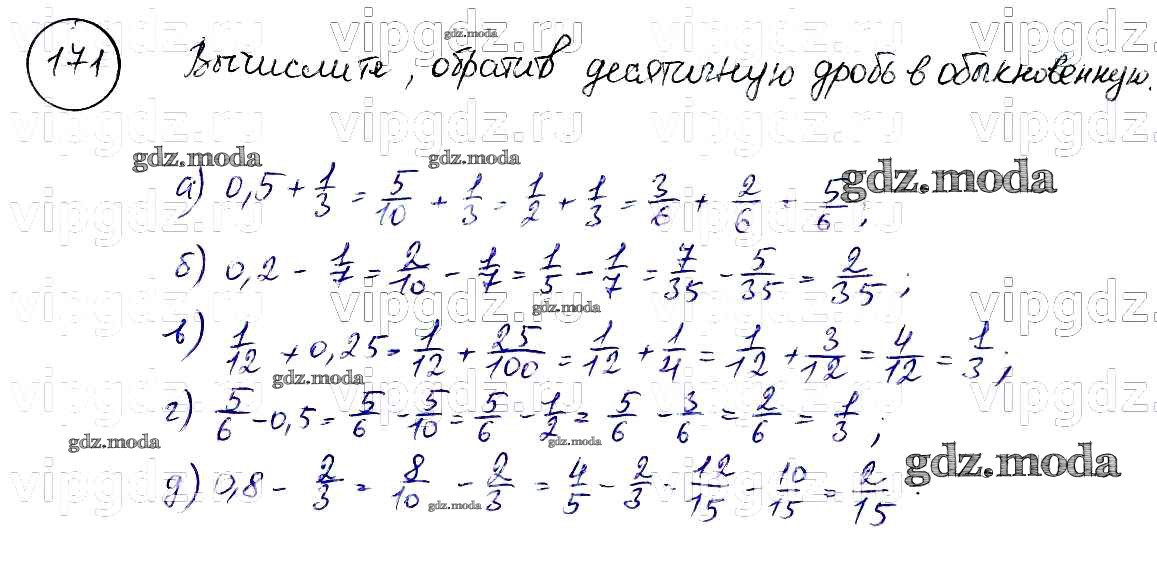 171 Вычислите, обратив десятичную дробь в обыкновенную.
а) 0,5 + 1/3 = 5/10 + 1/3 = 1/2 + 1/3 = 3/6 + 2/6 = 5/6;
б) 0,2 - 1/7 = 2/10 - 1/7 = 1/5 - 1/7 = 7/35 - 5/35 = 2/35;
в) 1/12 + 0,25 = 1/12 + 25/100 = 1/12 + 1/4 = 1/12 + 3/12 = 4/12 = 1/3;
г) 5/6 - 0,5 = 5/6 - 5/10 = 5/6 - 1/2 = 5/6 - 3/6 = 2/6 = 1/3;
д) 0,8 - 2/3 = 8/10 - 2/3 = 4/5 - 2/3 = 12/15 - 10/15 = 2/15.
gdz.moda
vipgdz.ru